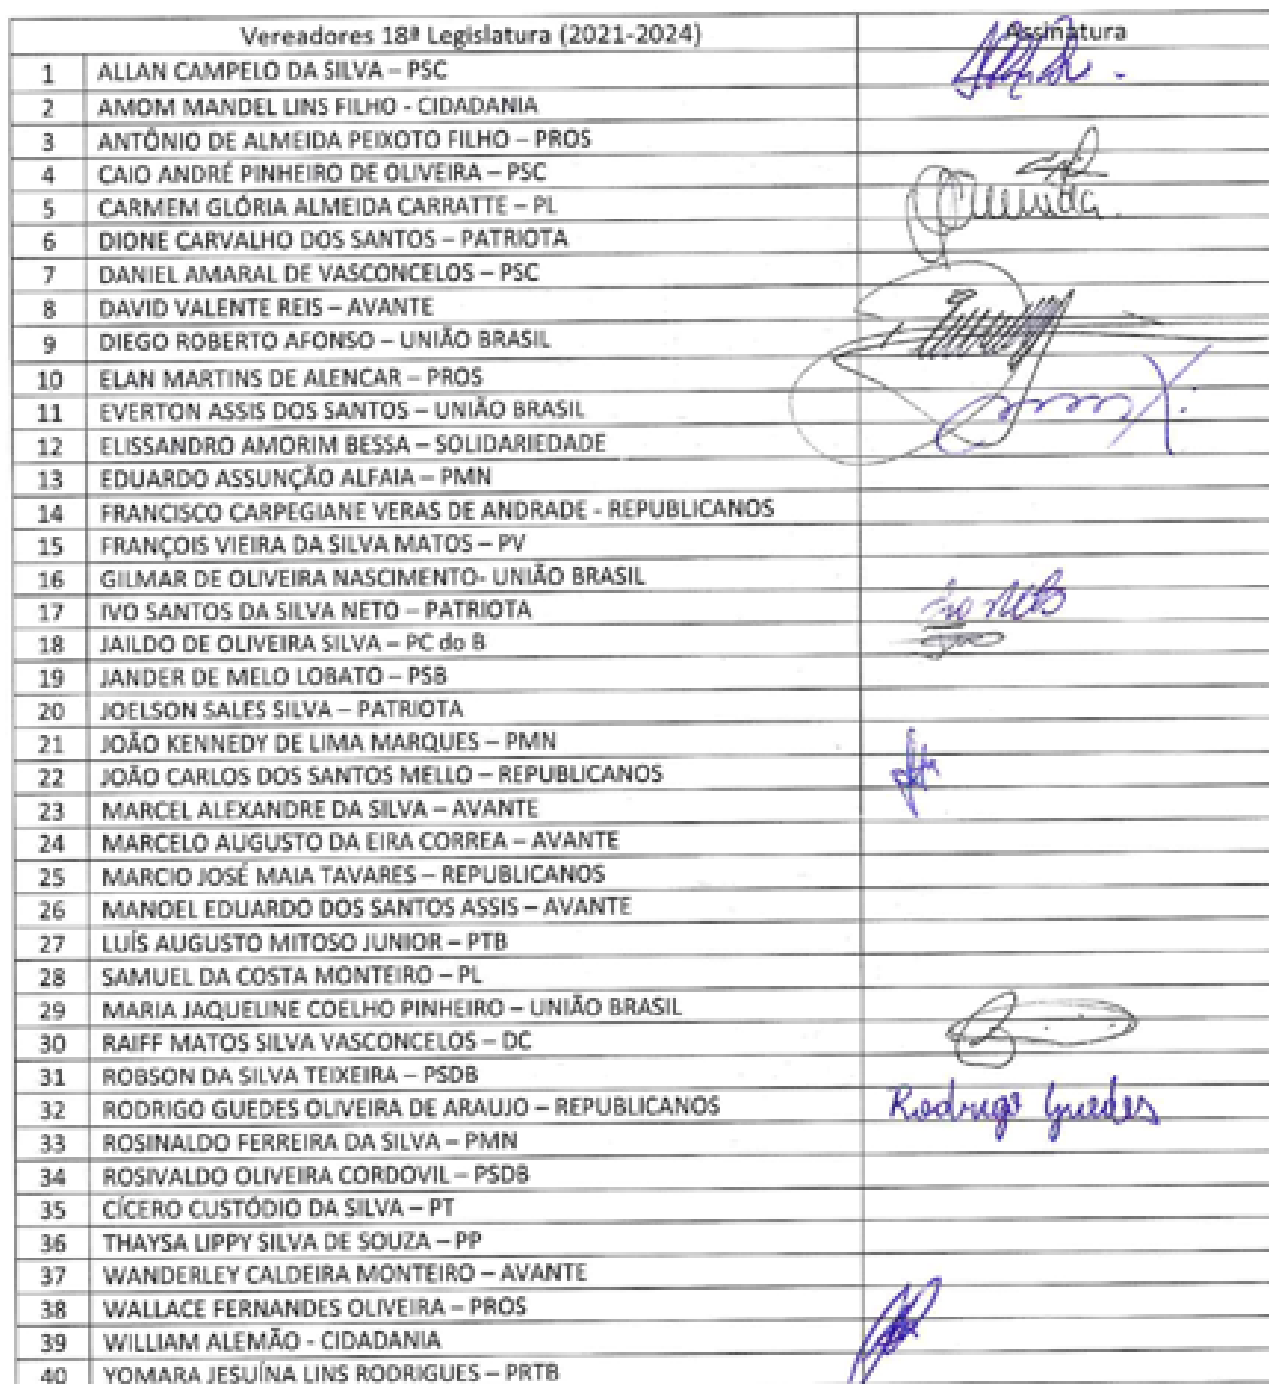 Vereadores 18ª Legislatura (2021-2024) Assinatura
1 ALLAN CAMPELO DA SILVA – PSC
2 AMOM MANDEL LINS FILHO - CIDADANIA
3 ANTÔNIO DE ALMEIDA PEIXOTO FILHO – PROS
4 CAIO ANDRÉ PINHEIRO DE OLIVEIRA – PSC
5 CARMEM GLÓRIA ALMEIDA CARRATTE – PL
6 DIONE CARVALHO DOS SANTOS – PATRIOTA
7 DANIEL AMARAL DE VASCONCELOS – PSC
8 DAVID VALENTE REIS – AVANTE
9 DIEGO ROBERTO AFONSO – UNIÃO BRASIL
10 ELAN MARTINS DE ALENCAR – PROS
11 EVERTON ASSIS DOS SANTOS – UNIÃO BRASIL
12 ELISSANDRO AMORIM BESSA – SOLIDARIEDADE
13 EDUARDO ASSUNÇÃO ALFAIA – PMN
14 FRANCISCO CARPEGIANE VERAS DE ANDRADE - REPUBLICANOS
15 FRANÇOIS VIEIRA DA SILVA MATOS – PV
16 GILMAR DE OLIVEIRA NASCIMENTO- UNIÃO BRASIL
17 IVO SANTOS DA SILVA NETO – PATRIOTA
18 JAILDO DE OLIVEIRA SILVA – PC do B
19 JANDER DE MELO LOBATO – PSB
20 JOELSON SALES SILVA – PATRIOTA
21 JOÃO KENNEDY DE LIMA MARQUES – PMN
22 JOÃO CARLOS DOS SANTOS MELLO – REPUBLICANOS
23 MARCEL ALEXANDRE DA SILVA – AVANTE
24 MARCELO AUGUSTO DA EIRA CORREA – AVANTE
25 MARCIO JOSÉ MAIA TAVARES – REPUBLICANOS
26 MANOEL EDUARDO DOS SANTOS ASSIS – AVANTE
27 LUÍS AUGUSTO MITOSO JUNIOR – PTB
28 SAMUEL DA COSTA MONTEIRO – PL
29 MARIA JAQUELINE COELHO PINHEIRO – UNIÃO BRASIL
30 RAIFF MATOS SILVA VASCONCELOS – DC
31 ROBSON DA SILVA TEIXEIRA – PSDB
32 RODRIGO GUEDES OLIVEIRA DE ARAUJO – REPUBLICANOS Rodrigo Guedes
33 ROSINALDO FERREIRA DA SILVA – PMN
34 ROSIVALDO OLIVEIRA CORDOVIL – PSDB
35 CÍCERO CUSTÓDIO DA SILVA – PT
36 THAYSA LIPPY SILVA DE SOUZA – PP
37 WANDERLEY CALDEIRA MONTEIRO – AVANTE
38 WALLACE FERNANDES OLIVEIRA – PROS
39 WILLIAM ALEMÃO - CIDADANIA
40 YOMARA JESUÍNA LINS RODRIGUES – PRTB